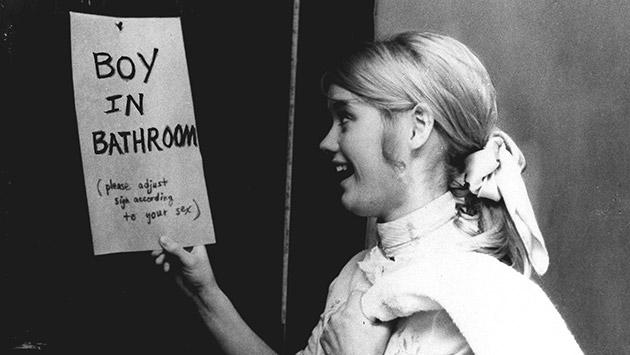 BOY
IN
BATHROOM
(please adjust
sign according
to your sex)